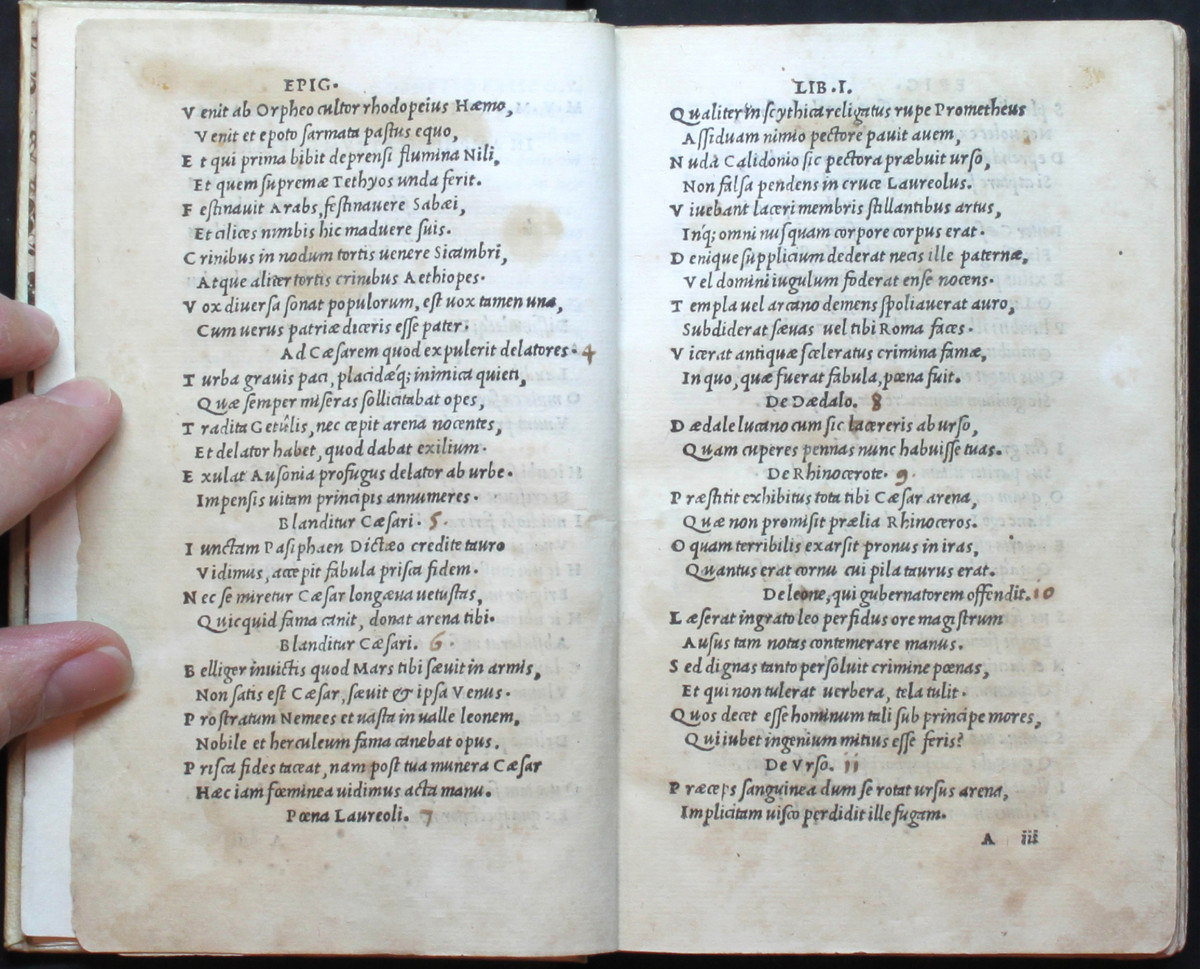 EPIG.
V enit ab Orpheo cultor rhodopeius Hæmo,
V enit et epoto sarmata pastus equo,
E t qui prima bibit deprensi flumina Nili,
Et quem supremæ Tethyos unda ferit.
F estinauit Arabs, festinauere Sabæi,
Et cilices nimbis hic maduere suis.
C rinibus in nodum tortis uenere Sicambri,
Atque aliter tortis crinibus Aethiopes.
V ox diuersa sonat populorum, est uox tamen una,
Cum uerus patriæ diceris esse pater.
Ad Cæsarem quod expulerit delatores. 4
T urba grauis paci, placidæq; inimica quieti,
Quæ semper miseras sollicitabat opes,
T radita Getûlis, nec cepit arena nocentes,
Et delator habet, quod dabat exilium.
E xulat Ausonia profugus delator ab urbe.
Impensis uitam principis annumeres.
Blanditur Cæsari. 5.
I unctam Pasiphaen Dictæo credite tauro
Vidimus, accepit fabula prisca fidem.
N ec se miretur Cæsar longæua uetustas,
Quicquid fama canit, donat arena tibi.
Blanditur Cæsari. 6.
B elliger inuictis quod Mars tibi sæuit in armis,
Non satis est Cæsar, sæuit & ipsa Venus.
P rostratum Nemees et uasta in ualle leonem,
Nobile et herculeum fama canebat opus.
P risca fides taceat, nam post tua munera Cæsar
Hæc iam fœminea uidimus acta manu.
Pœna Laureoli. 7
LIB.I.
Qualiter in scythica religatus rupe Prometheus
Assiduam nimio pectore pauit auem,
N uda Calidonio sic pectora præbuit urso,
Non falsa pendens in cruce Laureolus.
V iuebant laceri membris stillantibus artus,
Inq; omni nusquam corpore corpus erat.
D enique supplicium dederat necis ille paternæ,
Vel domini iugulum foderat ense nocens.
T empla uel arcano demens spoliauerat auro,
Subdiderat sæuas uel tibi Roma faces.
V icerat antiquæ sceleratus crimina famæ,
In quo, quæ fuerat fabula, pœna fuit.
De Dædalo. 8
D ædale lucano cum sic lacereris ab urso,
Quam cuperes pennas nunc habuisse tuas.
De Rhinocerote. 9.
P ræstitit exhibitus tota tibi Cæsar arena,
Quæ non promisit prælia Rhinoceros.
O quam terribilis exarsit pronus in iras,
Quantus erat cornu cui pila taurus erat.
De leone, qui gubernatorem offendit. 10
L æserat ingrato leo perfidus ore magistrum
Ausus tam notas contemerare manus.
S ed dignas tanto persoluit crimine pœnas,
Et qui non tulerat uerbera, tela tulit.
Quos decet esse hominum tali sub principe mores,
Qui iubet ingenium mitius esse feris?
De Vrso. ii
P ræceps sanguinea dum se rotat ursus arena,
Implicitam uisco perdidit ille fugam.
A iii